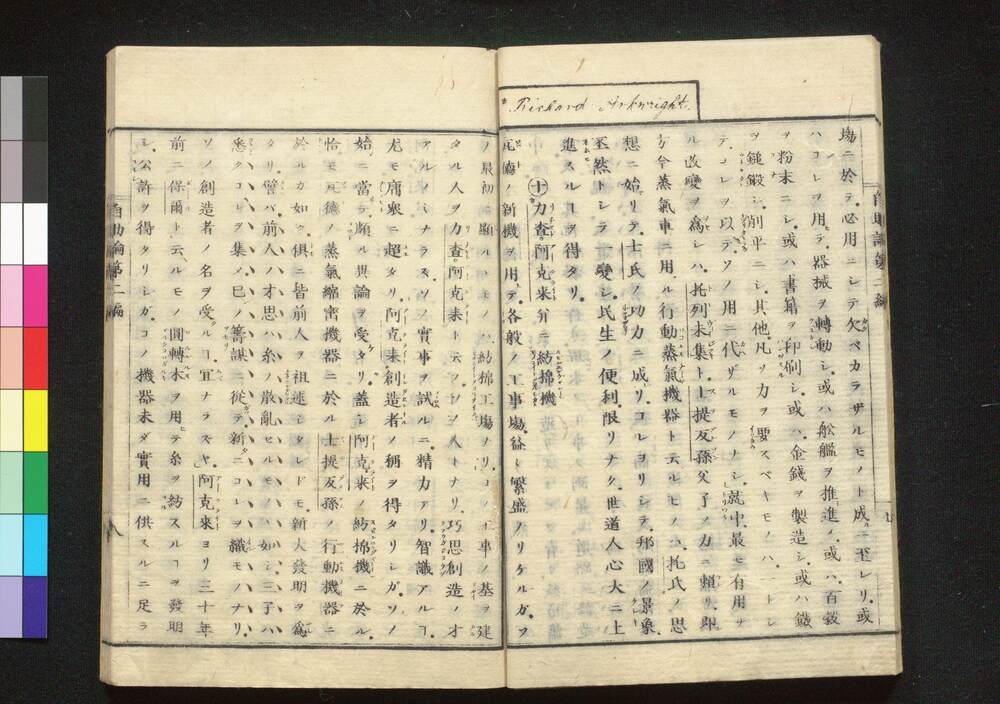 Richard Arkwright.
場ニ於テ必用ニシテ欠ベカラザルモノト成ニ至レリ或
ハコレヲ用テ器械ヲ轉動シ或ハ舩艦ヲ推進ノ或ハ百穀
ヲ粉末ニシ或ハ書籍ヲ印刷シ或ハ金錢ヲ製造シ或ハ鐵
ヲ鎚鍛シ削平ニシ其他凡ソ力ヲ要スベキモノハ一トシ
テコレヲ以テソノ用ニ代ザルモノナシ就中最モ有用ナ
ル改變ヲ爲シハ托列未集ト士提反孫父子ノ力ニ賴リ即
方今蒸氣車ニ用ル行動蒸氣機器ト云ルモノハ托氏ノ思
想ニ始リテ士氏ノ功力ニ成リコレヨリシテ邦國ノ景象
至然トシテ變シ民生ノ便利限リナク世道人心大ニ上
進スルヿヲ得タリ
十 力查阿克來弁ニ紡棉機
瓦德ノ新機ヲ用テ各般ノ工事場益々繁盛ノリケルガソ
七
自助論第二編
ノ最初顯ルルモノハ紡棉工場ノリコノ工事ノ基ヲ建
タル人ヲ力查阿克來トテノ人トナリ巧思創造ノオ
アルノミナラズソノ實事ヲ試ルニ精力アリ智識アルヿ
尤モ庸衆ニ超タリ阿克來創造者ノ稱ヲ得タリシガソノ
始ニ當テ頗ル異論ヲ受タリ蓋シ阿克來ノ紡棉機ニ於ル
恰モ瓦德ノ蒸氣縮密機器ニ於ル士提反孫ノ行動機器ニ
於ルカ如ク俱ニ皆前人ヲ祖述シタレドモ新大發明ヲ爲
タリ譬バ前人ノオ思ハ糸ノ散亂セルモノノ如シ三子ハ
悉クコレヲ集メ己ノ籌謀ニ從テ新タニコレヲ織モノナリ
ソノ創造者ノ名ヲ受ルヿ宜ナラズヤ阿克來ヨリ三十年
前ニ保爾ト云ルモノ圓轉木ヲ用ヒテ糸ヲ紡スルヿヲ發明
シ公許ヲ得タリシガコノ機器未ダ實用ニ供スルニ足ラ
自助論第二編
八